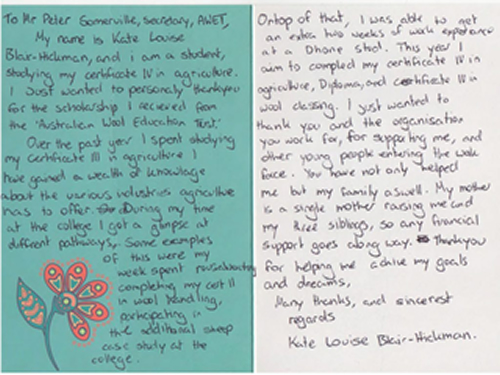 To Mr Peter Somerville, secretary, AWET,
My name is Kate Louise
Blair-Hickman, and i am a student,
studying my certificate IV in agriculture.
I Just wanted to personaly thankyou
for the scholarship I recieved from
the 'Australian Wool Education Trust.'
Over the past year I spent studying
my certificate III in agriculture I
have gained a wealth of knowlage
about the various industries agriculture
has to offer. During my time
at the college I got a glimpse at
different pathways,. Some examples
of this were my
week spent rouseabouting
completing my cert II
in wool handling,
participating in
the additional sheep
case study at the
college.
Ontop of that, I was able to get
an extra two weeks of work experience
at a Dhone stud. This year I
aim to compled my certificate IV in
agriculture, Diploma, and certificate IV in
wool classing. I just wanted to
thank you and the organisation
you work for, for supporting me, and
other young people entering the work
force. You have not only helped
me but my family aswell. My mother
is a single mother raising me and
my three siblings, so any financial
support goes along way. Thankyou
for helping me achive my goals
and dreams,
Many thanks, and sincerest
regards
Kate Louise Blair-Hickman.